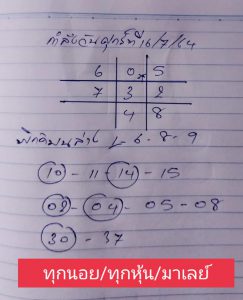 กำลังวันศุกร์ที่ 16/7/64
6 0 5
7 3 2
4 8
6-8-9
10-11-14-15
03-04-05-08
30-37
ทุกนอย/ทุกหุ้น/มาเลย์